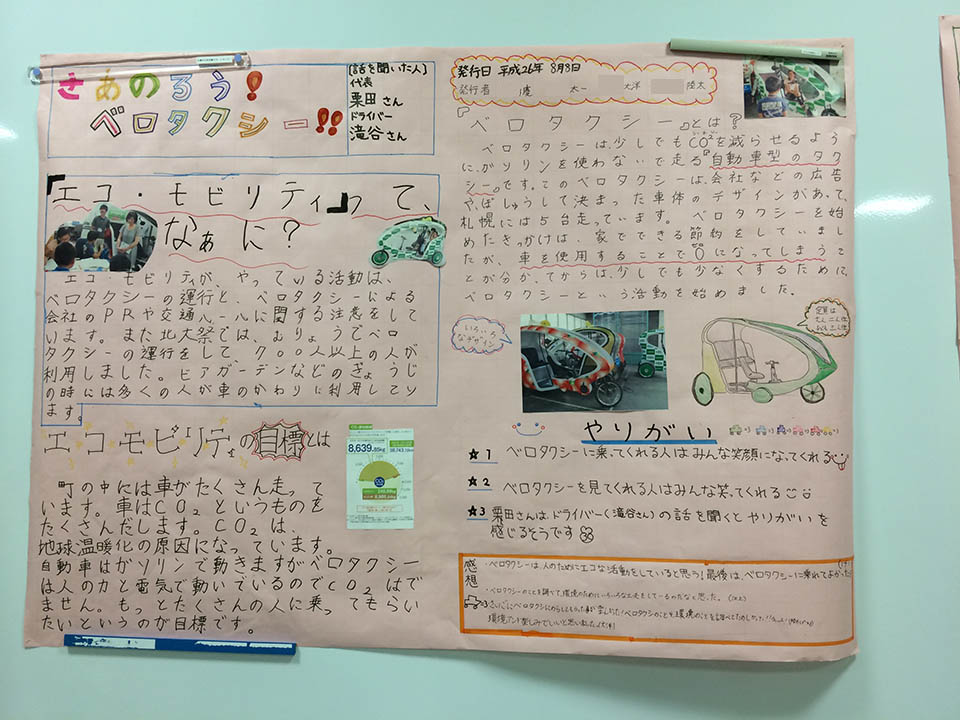 さぁのろう!
ベロタクシー!!
[話を聞いた人]
代表
栗田さん
ドライバー
滝谷さん
『エコ・モビリティ』って、
なぁに?
エコ・モビリティが、やっている活動は、
ベロタクシーの運行と、ベロタクシーによる
会社のPRや交通ルールに関する注意をして
います。また北大祭では、むりょうでベロ
タクシーの運行をして、700人以上の人が
利用しました。ビアガーデンなどのぎょうじ
の時には多くの人が車のかわりに利用してい
ます。
エコモビリティの目標とは
8,639.85kg
町の中には車がたくさん走って
います。車はCO2というものを
たくさんだします。CO2は、
地球温暖化の原因になっています。
自動車はガソリンで動きますがベロタクシー
は人の力と電気で動いているのでCO2はで
ません。もっとたくさんの人に乗ってもらい
たいというのが目標です。
発行日 平成26年 8月8日
発行者 慶 太一 大洋 陸太
『ベロタクシー』とは?
ベロタクシーは、少しでもCO2を減らせるよう
に、ガソリンを使わないで走る『自動車型のタク
シー』です。このベロタクシーは、会社などの広告
や、ぼしゅうして決まった車体のデザインがあって、
札幌には5台走っています。 ベロタクシーを始
めたきっかけは、家でできる節約をしていまし
たが、車を使用することで
になってしまうこ
とが分かってからは、少しでも少なくするために、
ベロタクシーという活動を始めました。
いろいろ
なデザイン
定員は
やりがい
★1 ベロタクシーに乗ってくれる人はみんな笑顔になってくれる
★2 ベロタクシーを見てくれる人はみんな笑ってくれる
★3 栗田さんは、ドライバー(滝谷さん)の話を聞くとやりがいを
感じるそうです
感想
・ベロタクシーは、人のためにエコな活動をしていると思う!最後は、ベロタクシーに乗れてよかった